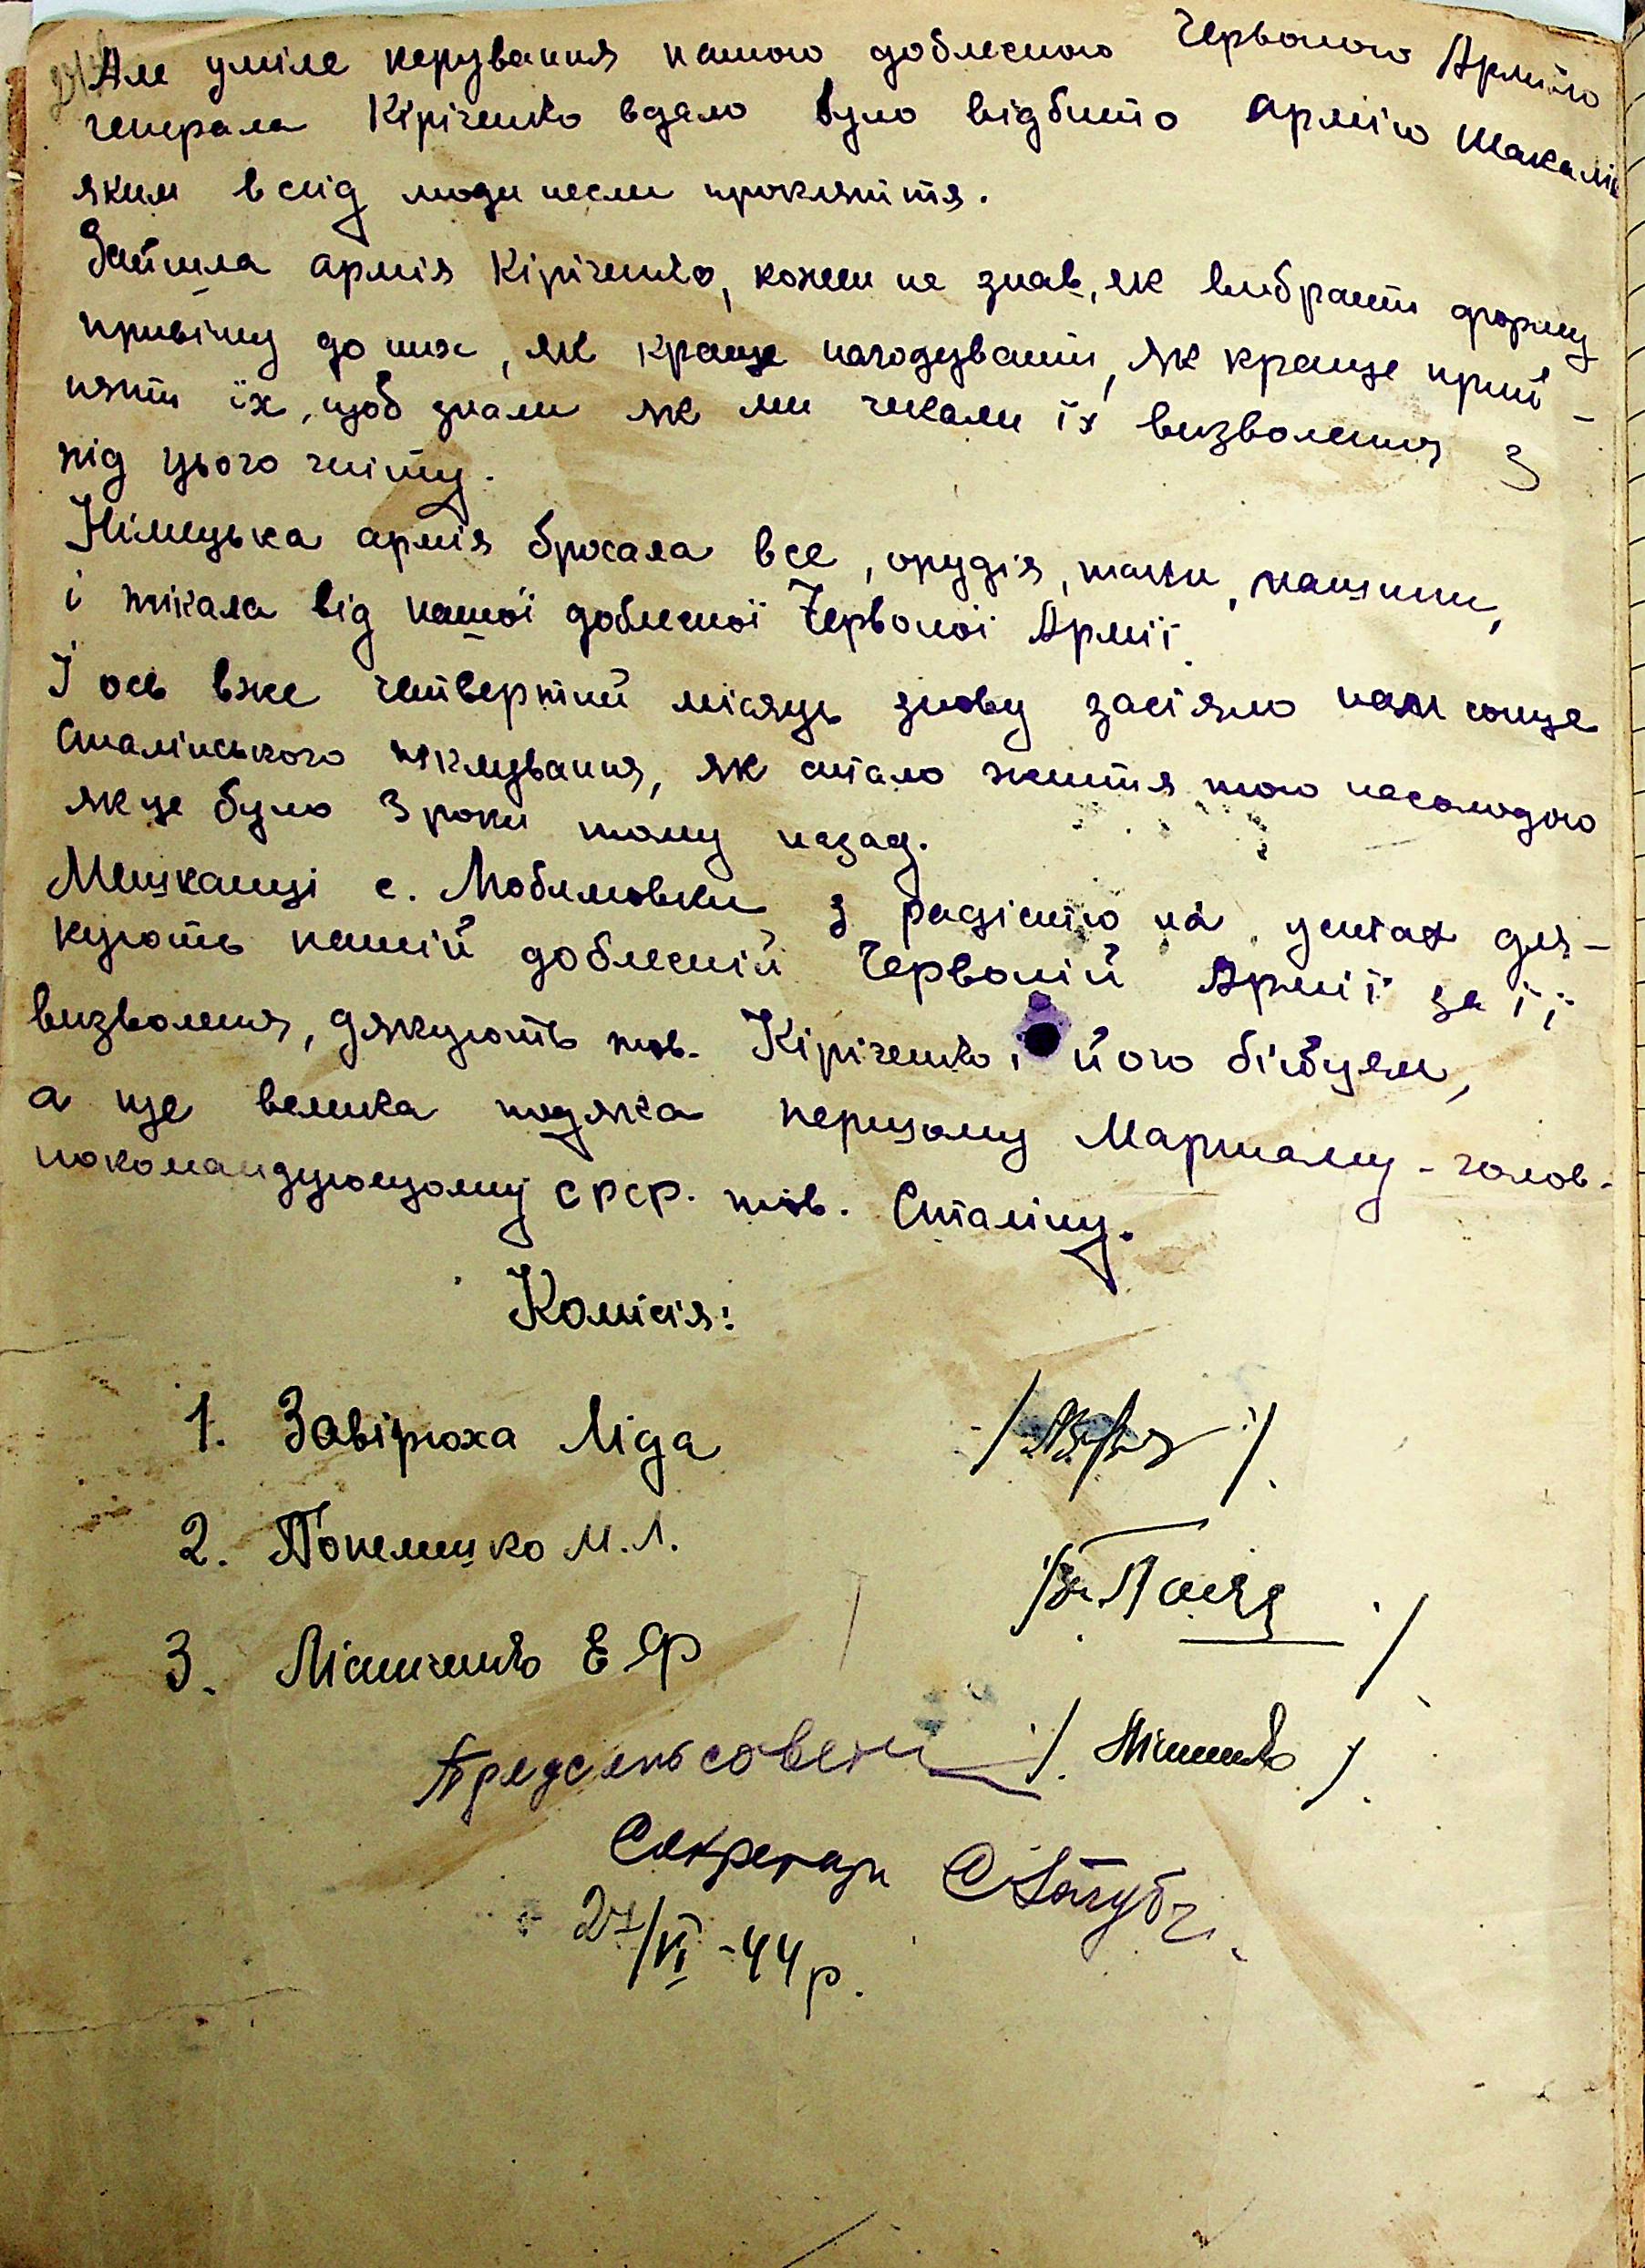 Але уміле керування нашою доблесною Червоною Армією
генерала Кіріченко вдало було відбито армію шакалів
яким вслід люди несли прокляття.
Зайшла армія Кіріченко, кожен не знав, як вибрати форму
привіту до них, як краще нагодувати, як краще прий-
няти їх, щоб знали як ми чекали їх визволення з
під цього гніту.
Німецька армія бросала все, орудія, танки, машини,
і тікала від нашої доблесної Червоної Армії.
І ось вже четвертий місяць знову засіяло нам сонце
Сталінського піклування, як стало життя тою насолодою
як це було 3 роки тому назад.
Мешканці с. Любимовки з радістю на устах дя-
кують нашій доблесній Червоній Армії за її
визволення, дякують тов. Кіріченко, і його бійцям,
а ще велика подяка першому Маршалу - голов-
нокомандующому СРСР. тов. Сталіну.
Комісія:
1. Завірюха Ліда
2. Попелишко М. Л.
3. Лісниченко Е Ф
Предсельсовета
Секретарь
27/VI - 44 р.